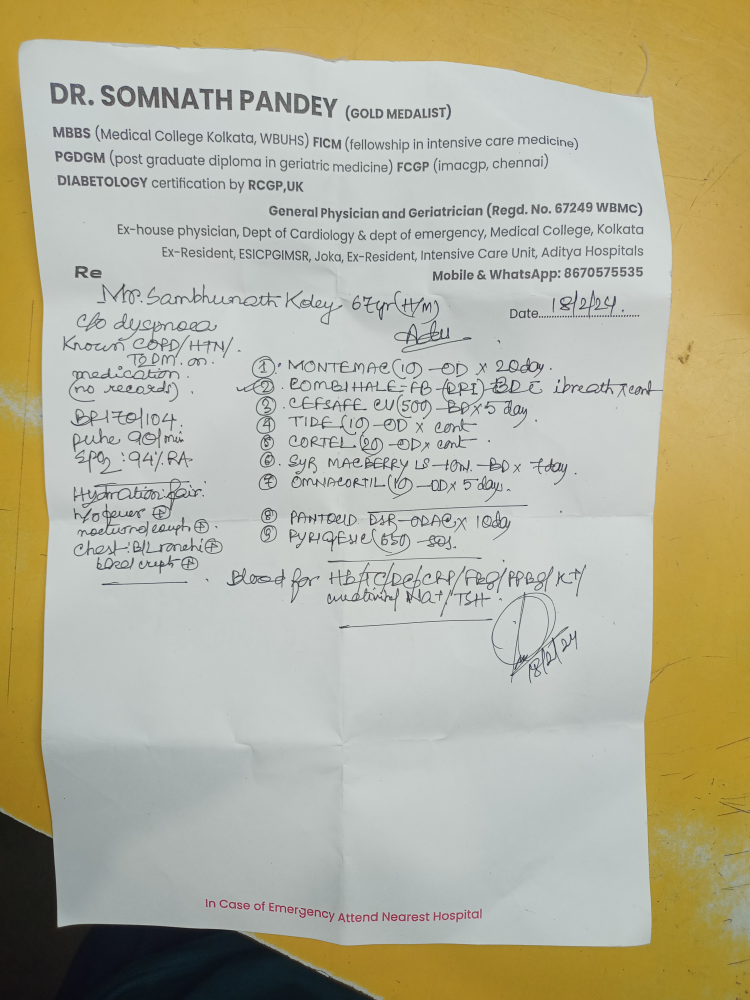 DR. SOMNATH PANDEY (GOLD MEDALIST)
MBBS (Medical College Kolkata, WBUHS) FICM (fellowship in intensive care medicine)
PGDGM (post graduate diploma in geriatric medicine) FCGP (imacgp, chennai)
DIABETOLOGY certification by RCGP,UK
General Physician and Geriatrician (Regd. No. 67249 WBMC)
Ex-house physician, Dept of Cardiology & dept of emergency, Medical College, Kolkata
Ex-Resident, ESICPGIMSR, Joka, Ex-Resident, Intensive Care Unit, Aditya Hospitals
Re
Mobile & WhatsApp: 8670575535
Mr. Sambhunath Koley 67yr (H/M)
Date 18/2/24.
c/o dyspnoea
Known COPD/HTN/
T2DM. on.
medication.
(no records).
BP 170/104
pulse 90/min
SPO2 : 94% RA.
Hydration fair.
h/o fever (+)
nocturnal cough (+).
Chest: B/L ronchi (+)
basal crepts (+)
① MONTEMAC (10) - OD x 20day.
② COMBIHALE-FB - (DPI) - BD c 1 breath x cont
③ CEFSAFE CV (500) - BD x 5 day
④ TIDE (10) - OD x cont
⑤ CORTEL (20) - OD x cont.
⑥ SYR MACBERRY LS - 10ml - BD x 7day.
⑦ OMNACORTIL (10) - OD x 5 day.
⑧ PANTOCID DSR - ODAC x 10day
⑨ PYRIGESIC (650) - SOS.
Blood for Hb/TC/DC/CRP/FBG/PPBG/K+/
creatinine/Na+/TSH.
18/2/24
In Case of Emergency Attend Nearest Hospital